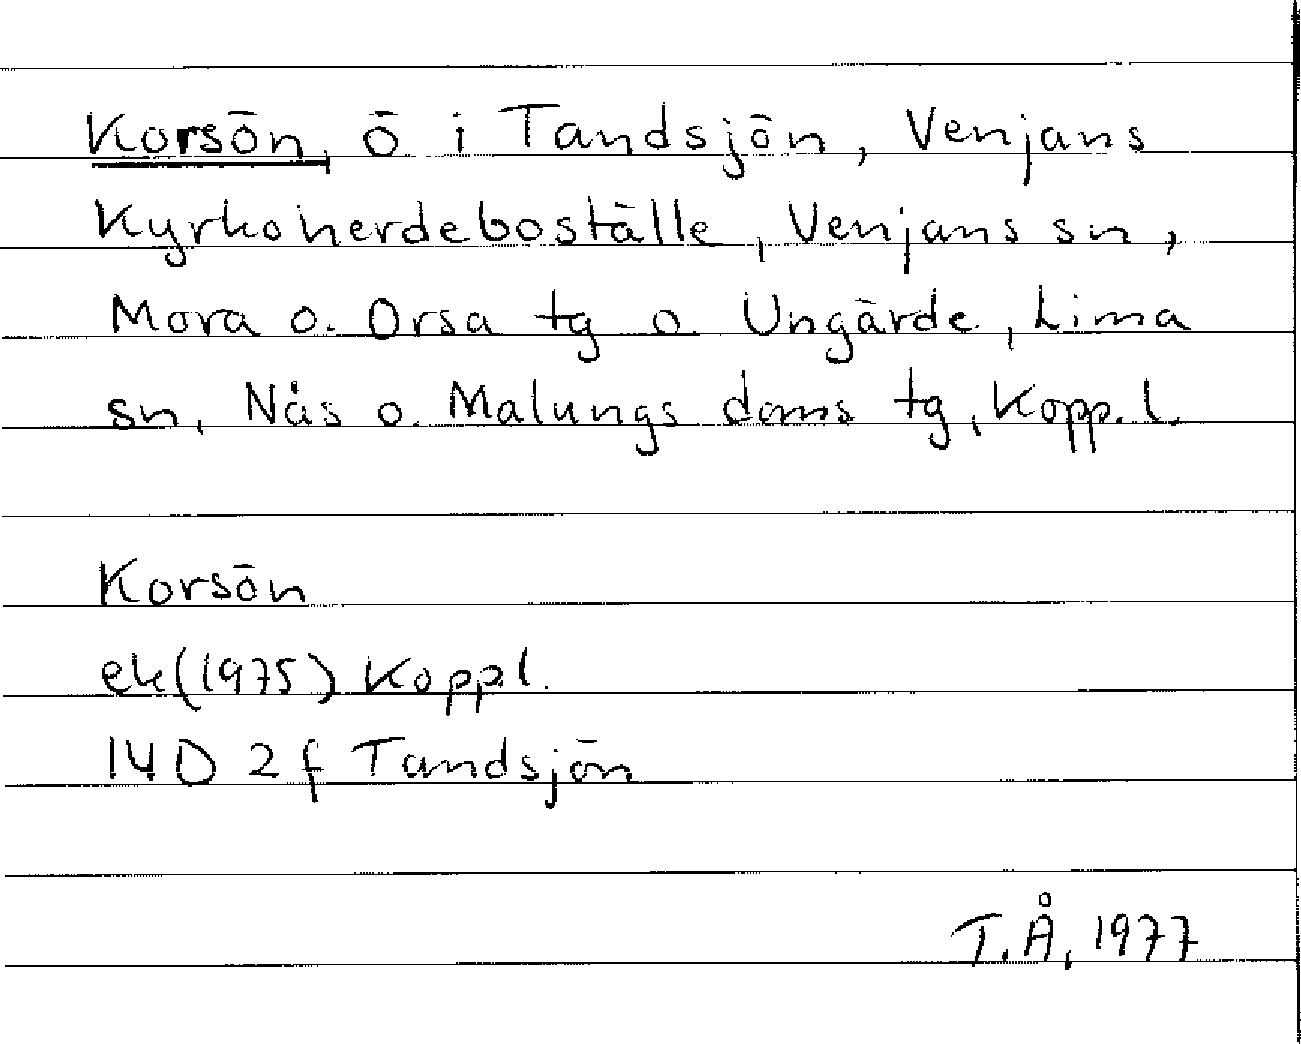 Korsön, ö i Tandsjön, Venjans
Kyrkoherdeboställe, Venjans sn,
Mora o. Orsa tg o. Ungärde, Lima
sn, Nås o. Malungs doms tg, Kopp. l.
Korsön
ek (1975) Koppl.
14D 2f Tandsjön
T.Å, 1977